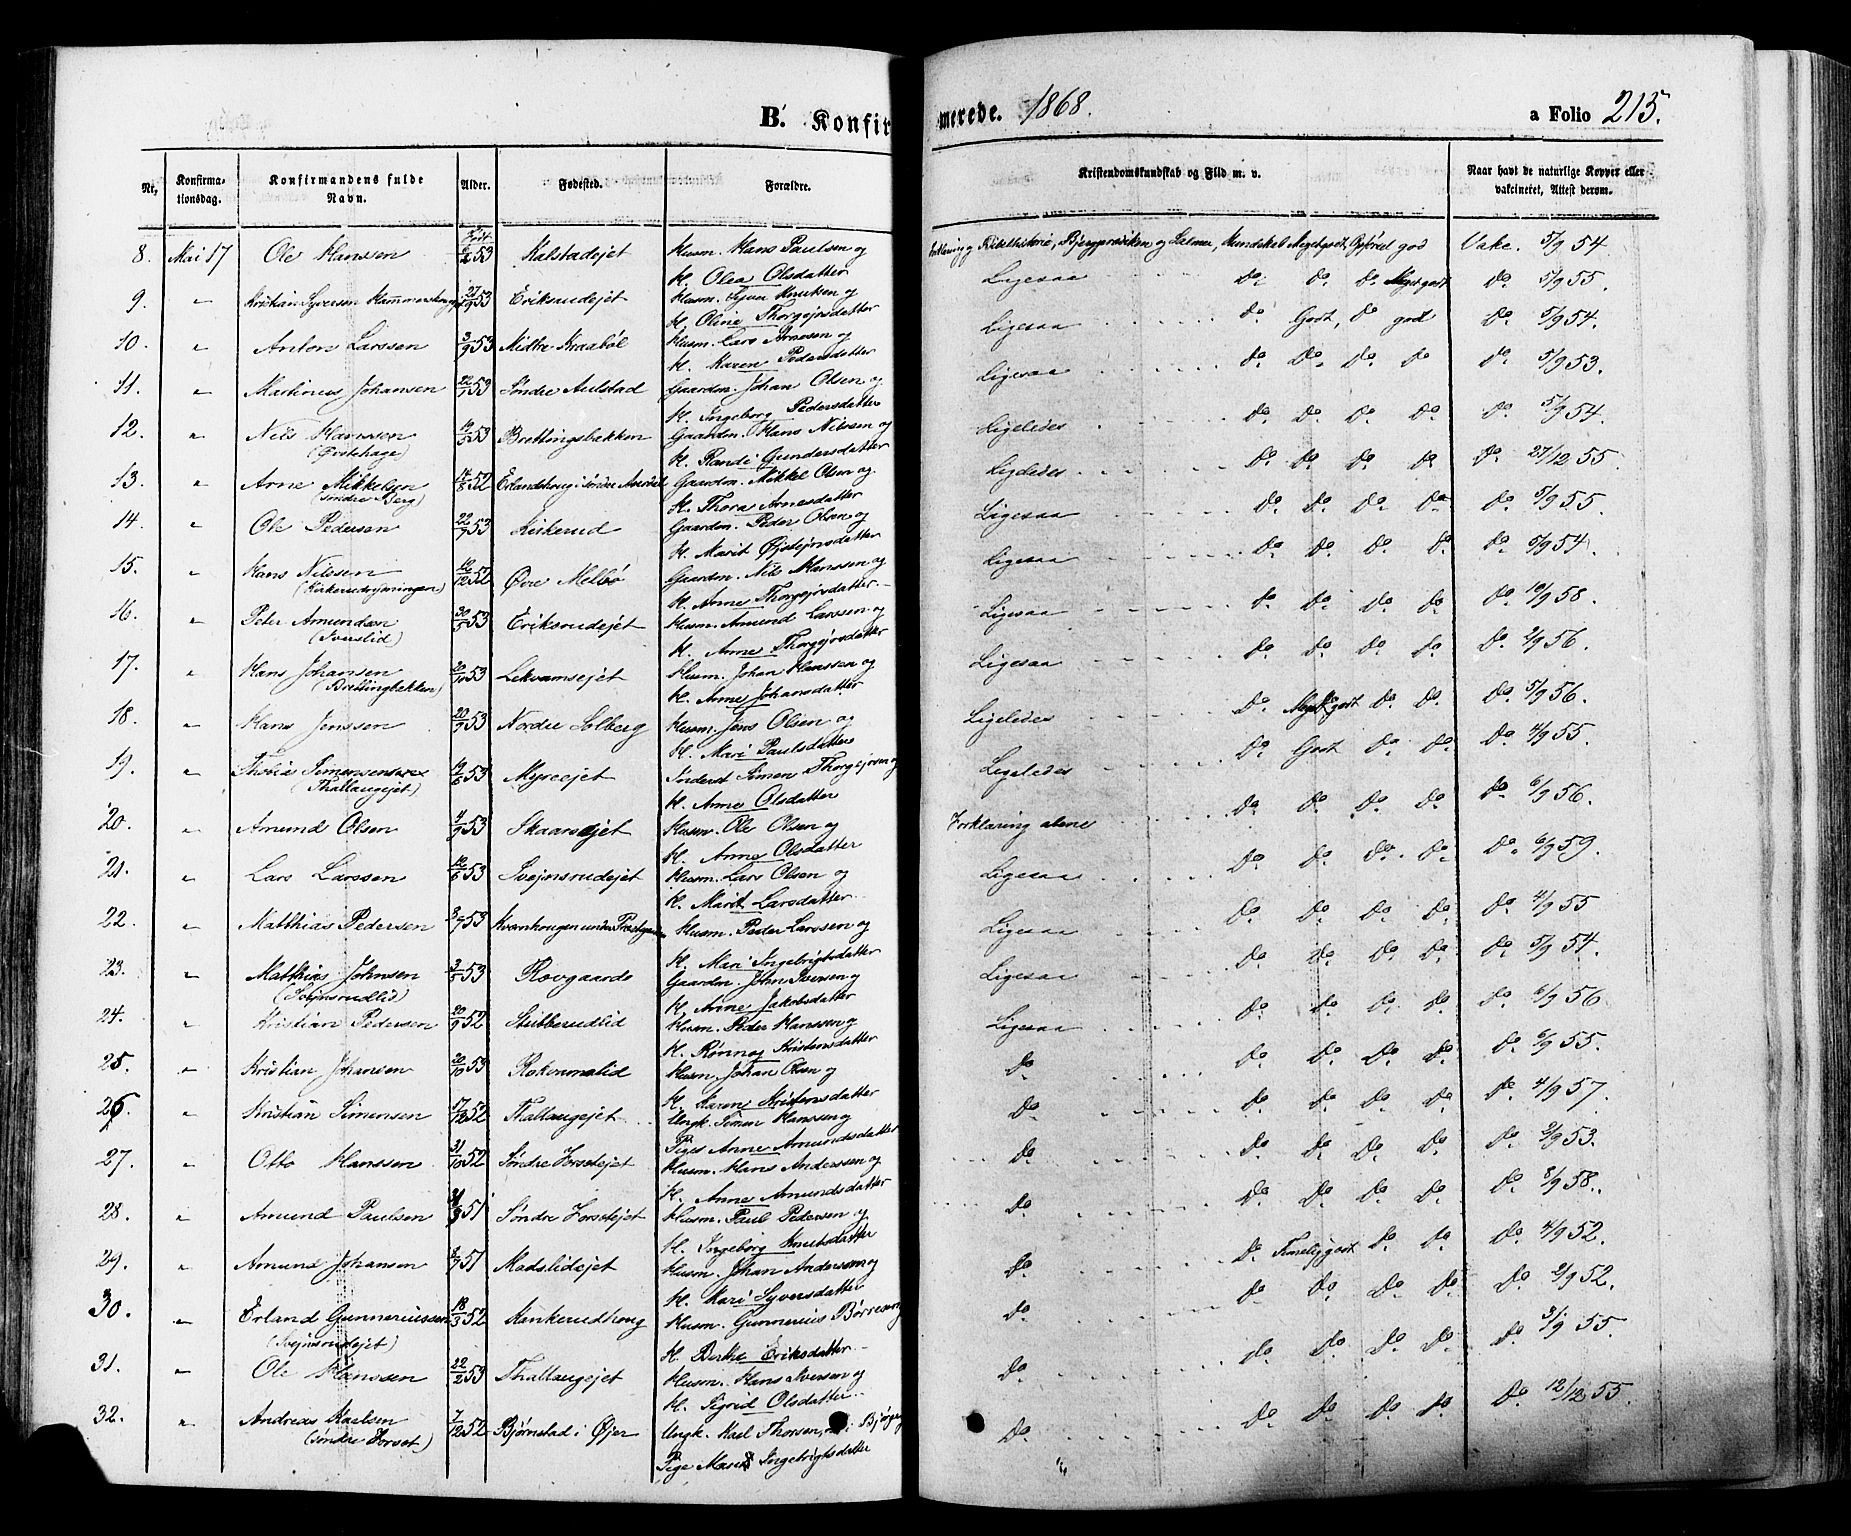 B. Konfir
merede. 1868.
a Folio 215.
Nr. Konfirma- tionsdag. Konfirmandens fulde Navn. Alder. Fødested. Forældre.
Kristendomskundskab og Flid m. v. Naar havt de naturlige Kopper eller vakcineret, Attest derom.
8. Mai 17 Ole Hanssen Født 6/2 53 Kalstadejet Husm. Hans Paulsen og
K. Olea Olsdatter
Forklaring og Bibelhistorie, og Salmer, Kundskab Megetgodt, Opførsel god Vakc. 5/9 54.
9. " Kristian Syversen 27/9 53 Eriksrudejet Husm. Syver Knutsen og
K. Oline Thorgejrsdatter
Ligesaa Do Do Megetgodt Do 5/9 55.
10. " Anton Larssen 3/9 53 Midtre Kraabøl Husm. Lars Arnesen og
K. Karen Pedersdatter
Ligesaa Do Godt, Do god Do 5/9 54.
11. " Martinus Johansen 22/7 53 Søndre Aulstad Gaardm. Johan Olsen og
K. Ingeborg Pedersdatter
Ligesaa Do Do Do Do Do 5/9 53.
12. " Nils Hanssen 19/5 53 Brettingsbakken Gaardm. Hans Nilsen og
K. Randi Gundersdatter
Ligeledes Do Do Do Do Do 5/9 54.
13. " Arne Mikkelsen 14/8 52 Erlandshoug i søndre Gaardm. Mikkel Olsen og
(søndre Berg)
K. Thora Arnesdatter
Ligeledes Do Do Do Do Do 27/12 55.
14. " Ole Pedersen 22/9 53 Liskerud Gaardm. Peder Olsen og
K. Marit Øjstejnsdatter
Ligesaa Do Do Do Do Do 5/9 55.
15. " Hans Nilssen 10/12 52 Øvre Melbø Gaardm. Nils Hanssen og
K. Anne Thorgejrsdatter
Ligesaa Do Do Do Do Do 5/9 54.
16. " Peter Amundsen 30/5 53 Eriksrudejet Husm. Amund Larssen og
(Sverslid)
K. Anne Thorgejrsdatter
Ligesaa Do Do Do Do Do 10/9 58.
17. " Hans Johansen 20/10 53 Lekvamsejet Husm. Johan Hanssen og
(Brettingbakken)
K. Anne Johansdatter
Ligesaa Do Do Do Do Do 2/9 56.
18. " Hans Jenssen 20/9 53 Nordre Solberg Husm. Jens Olsen og
K. Mari Paulsdatter
Ligeledes Do Megetgodt Do Do Do 5/9 56.
19. " Thobias Simensen 19/6 53 Myreejet Inderst Simen Thorgejrsen og
(Thallaugejet)
K. Anne Olsdatter
Ligeledes Do Godt Do Do Do 4/9 55.
20. " Amund Olsen 4/9 53 Skaarsejet Husm. Ole Olsen og
K. Anne Olsdatter
Forklaring alene Do Do Do Do Do 6/9 56.
21. " Lars Larssen 12/6 53 Svejnsrudejet Husm. Lars Olsen og
K. Marit Larsdatter
Ligesaa Do Do Do Do Do 6/9 59.
22. " Matthias Pedersen 3/7 53 Kvarnhougen under Husm. Peder Larssen og
K. Mari Ingebrigtsdatter
Ligesaa Do Do Do Do Do 4/9 55
23. " Matthias Johnsen 3/5 53 Rovgaarde Gaardm. John Iversen og
(Svejnsrudlid)
K. Anne Jakobsdatter
Ligesaa Do Do Do Do Do 5/9 54.
24. " Kristian Pedersen 20/9 52 Stubberudlid Husm. Peder Hanssen og
K. Rønnog Kristensdatter
Ligesaa Do Do Do Do Do 6/9 56
25. " Kristian Johansen 20/10 53 Kokvamslid Husm. Johan Olsen og
K. Karen Kristensdatter
Do Do Do Do Do Do 6/9 55.
26. " Kristian Simensen 17/12 52 Thallaugejet Ungk. Simen Hanssen og
Pige Anne Amundsdatter
Do Do Do Do Do Do 4/9 57.
27. " Otto Hanssen 31/10 52 Søndre Forsetejet Husm. Hans Anderssen og
K. Anne Amundsdatter
Do Do Do Do Do Do 2/9 53.
28. " Amund Paulsen 51 Søndre Forsetejet Husm. Paul Pedersen og
K. Ingeborg Knutsdatter
Do Do Do Do Do Do 8/9 58.
29. " Amund Johansen 51 Madslidejet Husm. Johan Anderssen og
K. Mari Syversdatter
Do Do Temeliggodt Do Do Do 4/9 52.
30. " Erland Gunneriussen 18/3 52 Kankerudhoug Husm. Gunnerius Børresen og
(Svejnsrudejet)
K. Berthe Eriksdatter
Do Do Do Do Do Do 2/9 52.
31. " Ole Hanssen 22/2 53 Thallaugejet Husm. Hans Iversen og
K. Sigrid Olsdatter
Do Do Do Do Do Do 3/9 55.
32. " Andreas Kaelsen 7/12 52 Bjørnstad i Øjer Ungk. Kael Thorsen,
(søndre Forset)
Pige Mari Ingebrigtsdatter
Do Do Do Do Do Do 12/12 55.